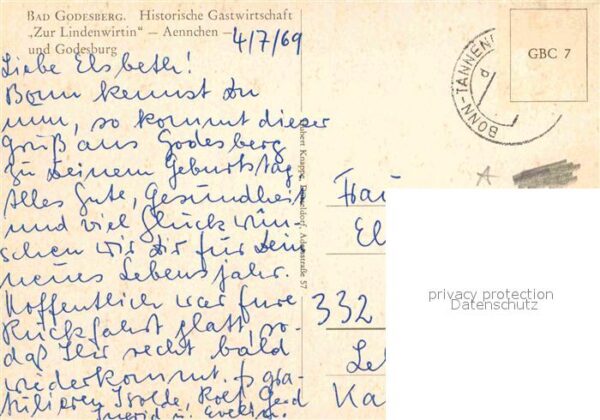 BAD GODESBERG. Historische Gastwirtschaft
„Zur Lindenwirtin“ — Aennchen —
und Godesburg
4/7/69
Liebe Elsbeth!
Bonn kennst Du
nun, so kommt dieser
Gruß aus Godesberg
zu Deinem Geburtstag.
Alles Gute, Gesundheit
und viel Glück wün-
schen wir Dir für Dein
neues Lebensjahr.
Hoffentlich war Eure
Rückfahrt glatt, so-
daß Ihr recht bald
wiederkommt. Es gra-
tulieren Isolde, Rolf, Gerd
Ingrid u.
Hubert Knappe, Düsseldorf, Adersstraße 57
GBC 7
BONN-TANNEN
d
Frau
El
332
Le
Ka
privacy protection
Datenschutz